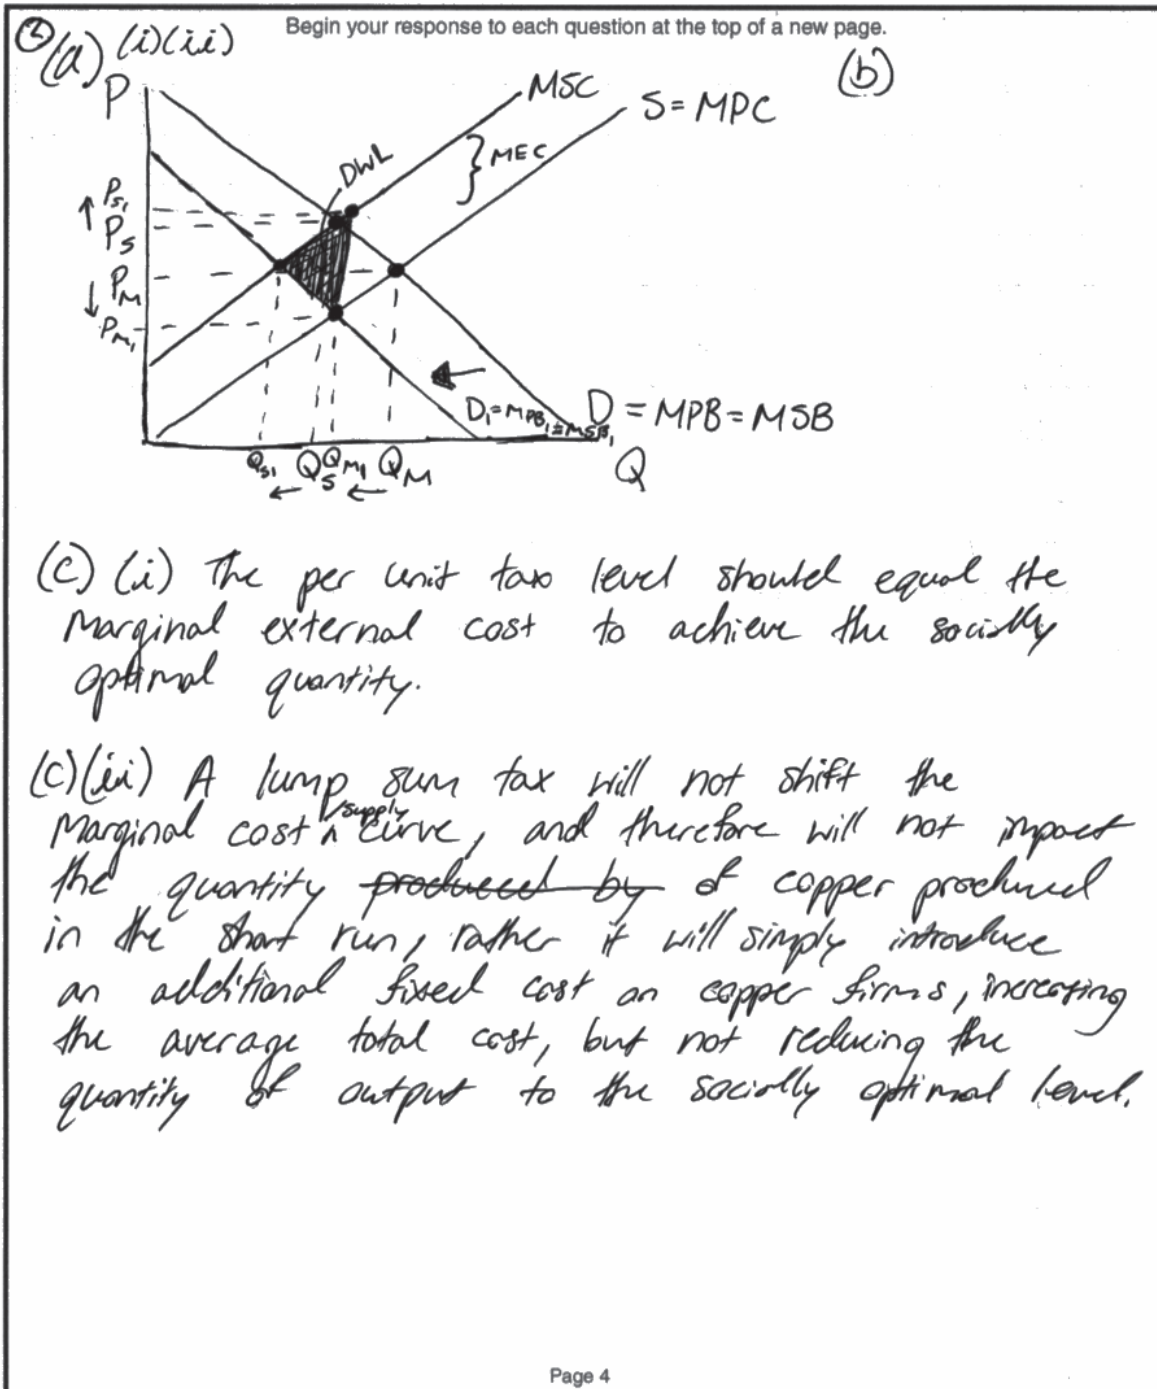 Begin your response to each question at the top of a new page.
② (a) (i)(ii)
(b)
P
MSC
S = MPC
MEC
DWL
Ps₁
Ps
PM
PM₁
D₁ = MPB₁ = MSB₁
D = MPB = MSB
Qs₁ Qs QM₁ QM
Q
(c) (i) The per unit tax level should equal the
marginal external cost to achieve the socially
optimal quantity.
(c)(ii) A lump sum tax will not shift the
marginal cost /supply curve, and therefore will not impact
the quantity produced by of copper produced
in the short run, rather it will simply introduce
an additional fixed cost on copper firms, increasing
the average total cost, but not reducing the
quantity of output to the socially optimal level.
Page 4